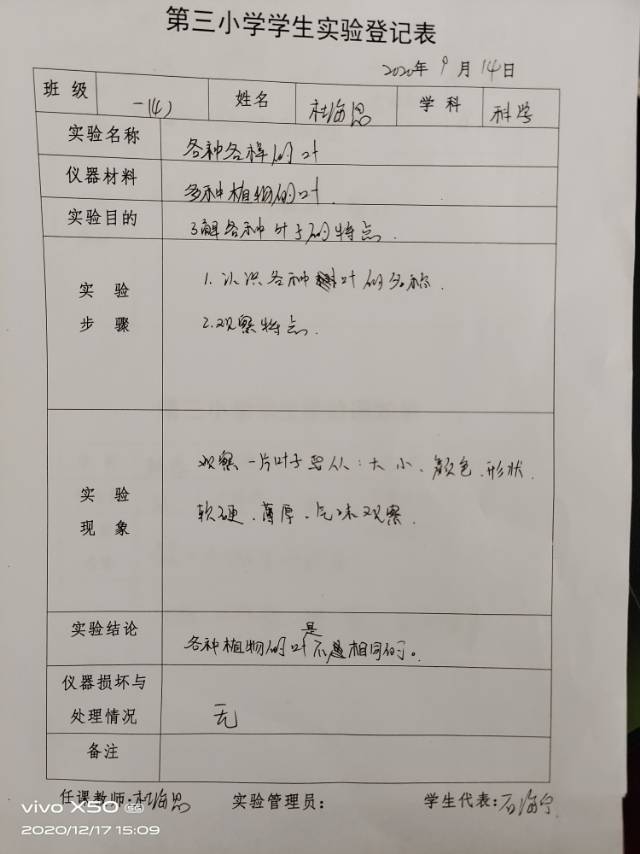 第三小学学生实验登记表
2020年 9 月 14日
班 级 一(4) 姓名 杜海恩 学 科 科学
实验名称 各种各样的叶
仪器材料 多种植物的叶.
实验目的 了解各种叶子的特点.
实 验 1.认识各种叶的名称.
步 骤 2.观察特点.
观察一片叶子要从:大小、颜色、形状、
实 验
现 象 软硬、薄厚、气味观察.
实验结论 各种植物的叶是不相同的。
仪器损坏与
处理情况 无
备注
任课教师:杜海恩 实验管理员: 学生代表:石海宁
vivo X50 5G
2020/12/17 15:09